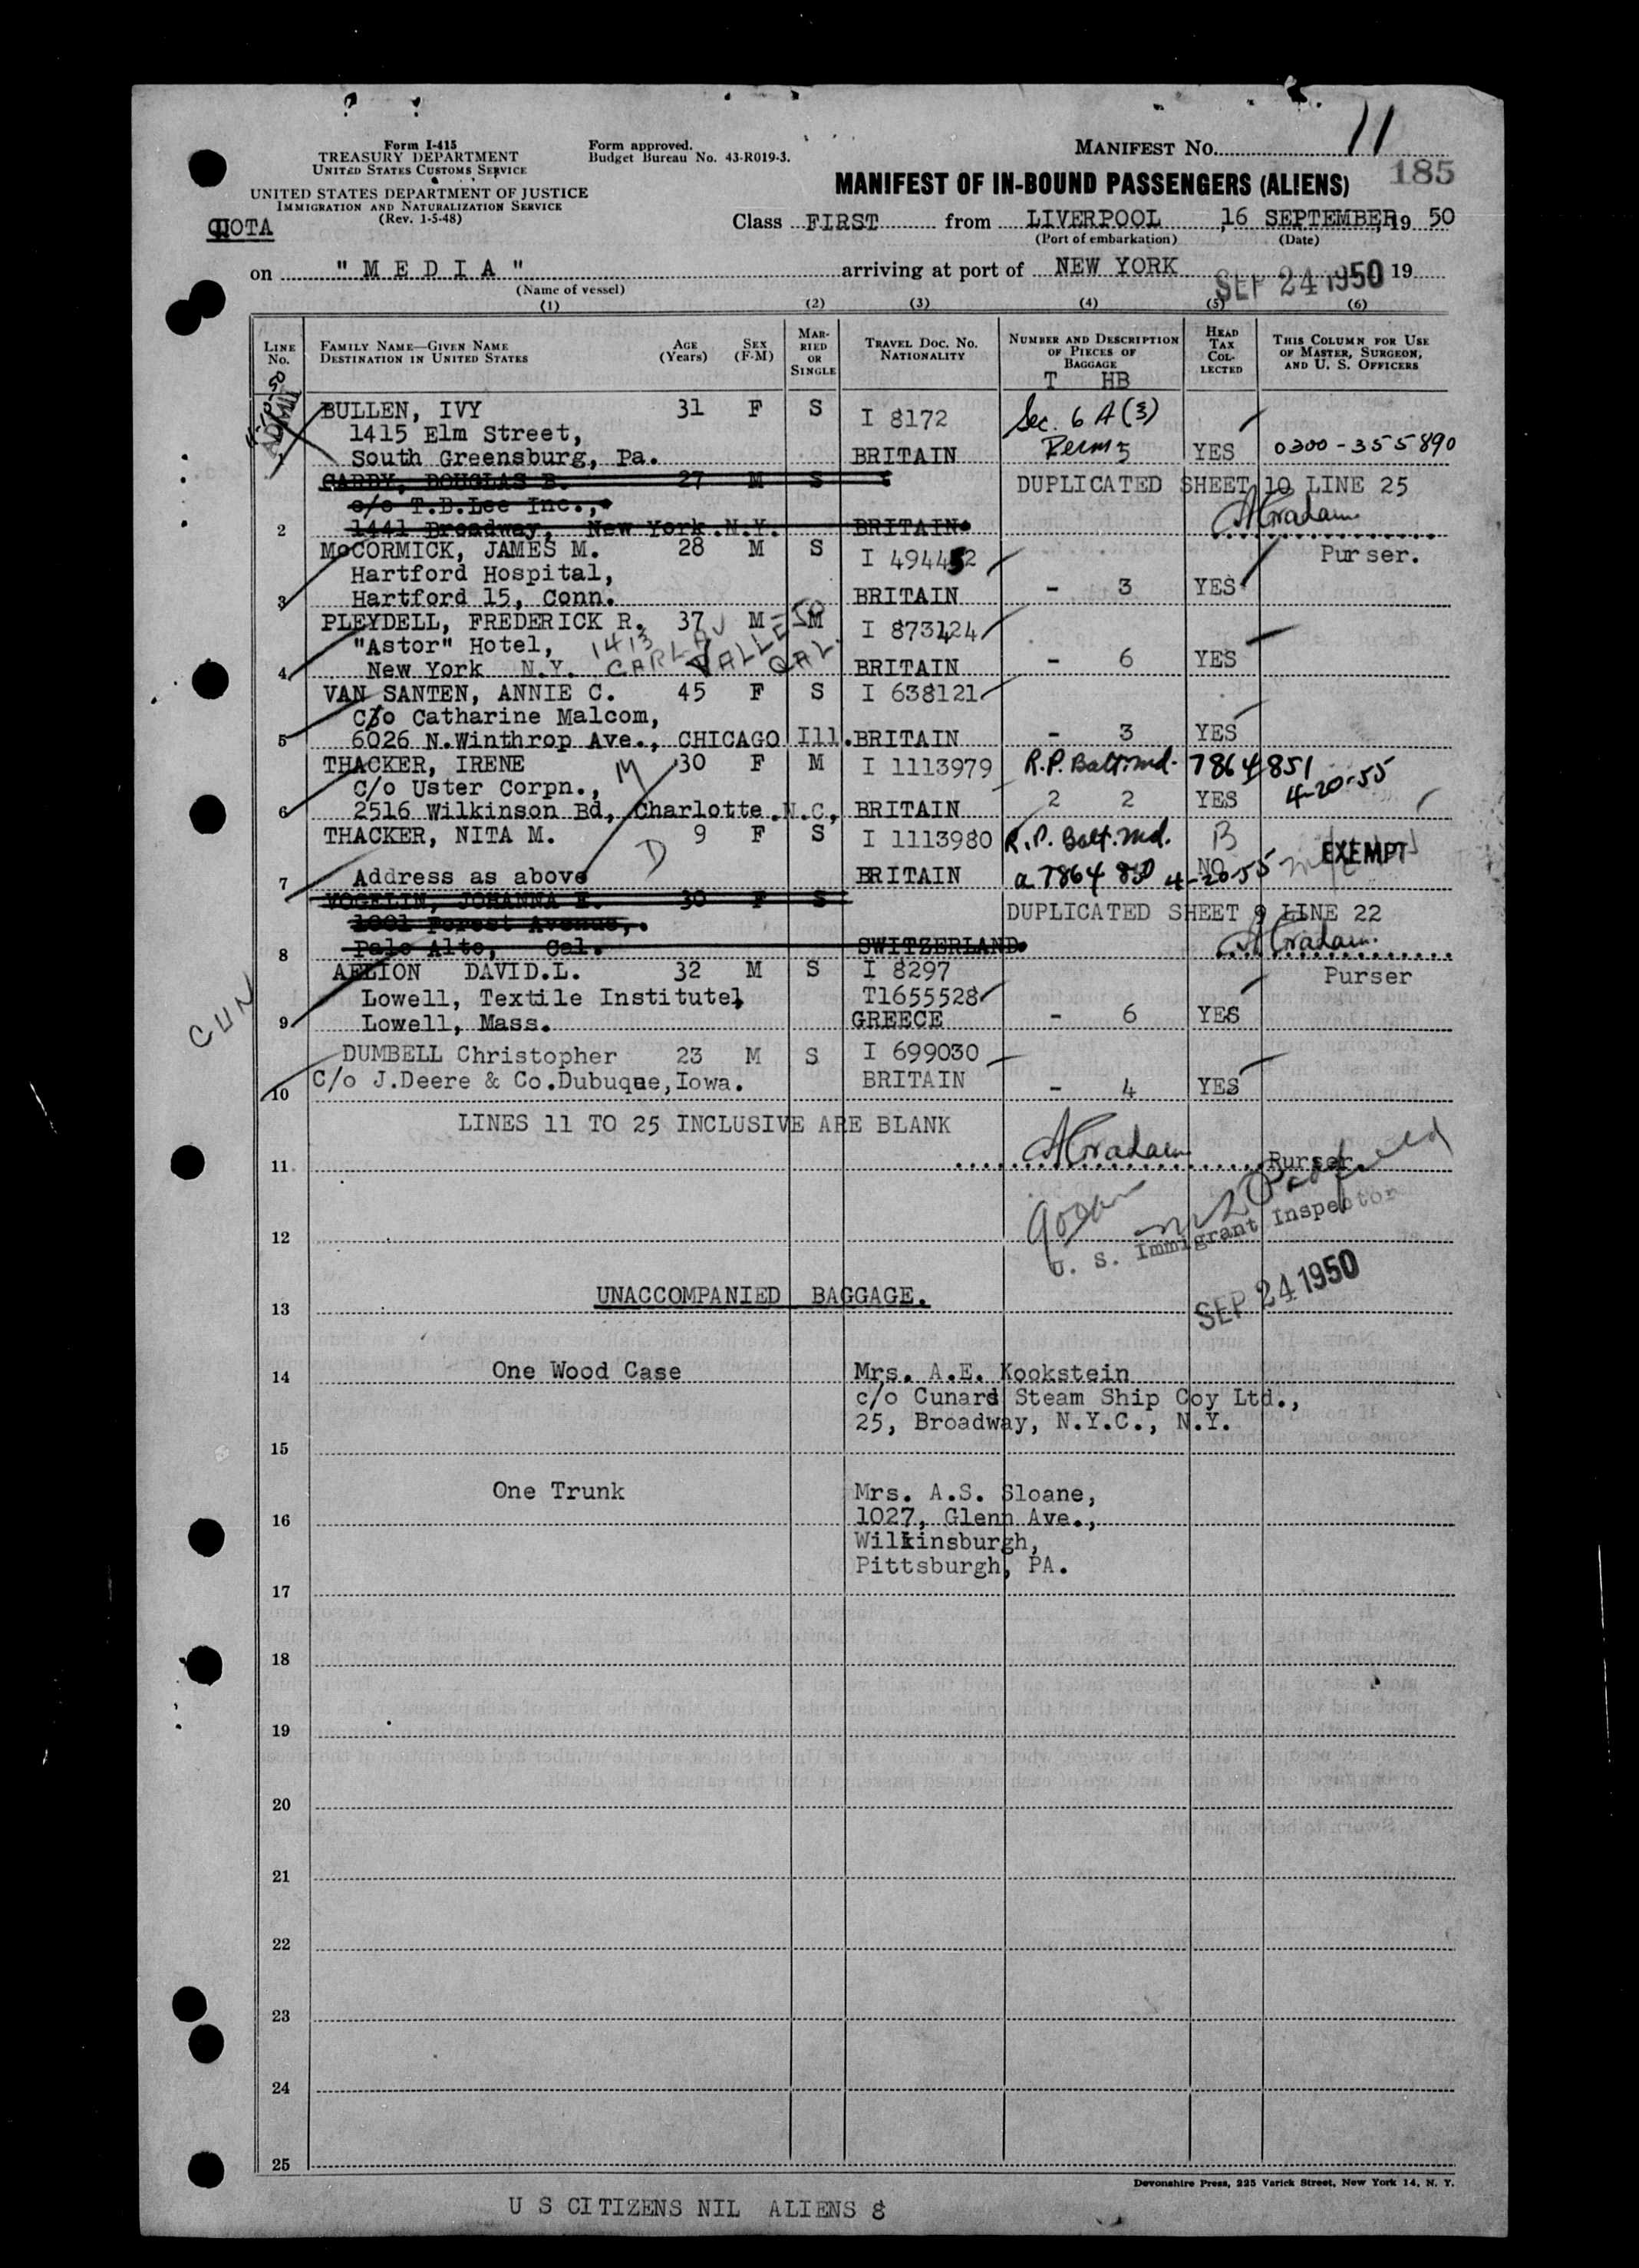 Form I-415
TREASURY DEPARTMENT
UNITED STATES CUSTOMS SERVICE
UNITED STATES DEPARTMENT OF JUSTICE
IMMIGRATION AND NATURALIZATION SERVICE
(Rev. 1-5-48)
QUOTA
Form approved.
Budget Bureau No. 43-R019-3.
MANIFEST No. 11
185
MANIFEST OF IN-BOUND PASSENGERS (ALIENS)
Class FIRST from LIVERPOOL , 16 SEPTEMBER, 19 50
(Port of embarkation) (Date)
on "MEDIA" arriving at port of NEW YORK SEP 24 1950 19
(Name of vessel)
(1) (2) (3) (4) (5) (6)
LINE No. FAMILY NAME—GIVEN NAME DESTINATION IN UNITED STATES AGE (Years) SEX (F-M) MARRIED OR SINGLE TRAVEL DOC. NO. NATIONALITY NUMBER AND DESCRIPTION OF PIECES OF BAGGAGE HEAD TAX COLLECTED THIS COLUMN FOR USE OF MASTER, SURGEON, AND U. S. OFFICERS
T HB
BULLEN, IVY 31 F S I 8172 Sec. 6 A (3)
1415 Elm Street,
1 South Greensburg, Pa. BRITAIN Perm 5 YES 0300-355890
CARDY, DOUGLAS B. 27 M S DUPLICATED SHEET 10 LINE 25
c/o T.B.Lee Inc.,
2 1441 Broadway, New York.N.Y. BRITAIN.
McCORMICK, JAMES M. 28 M S I 494452 Purser.
Hartford Hospital,
3 Hartford 15, Conn. BRITAIN - 3 YES
PLEYDELL, FREDERICK R. 37 M M I 873124
"Astor" Hotel, 1413
4 New York N.Y. VALLEJO CAL. BRITAIN - 6 YES
VAN SANTEN, ANNIE C. 45 F S I 638121
C/o Catharine Malcom,
5 6026 N.Winthrop Ave., CHICAGO Ill. BRITAIN - 3 YES
THACKER, IRENE M 30 F M I 1113979 R.P. Balt. Md. 7864851
C/o Uster Corpn., 4-20-55
6 2516 Wilkinson Bd, Charlotte.N.C, BRITAIN 2 2 YES
THACKER, NITA M. D 9 F S I 1113980 R.P. Balt. Md. B EXEMPT
7 Address as above BRITAIN a 7864 850 NO 4-20-55
VOGELIN, JOHANNA E. 30 F S DUPLICATED SHEET 9 LINE 22
1001 Forest Avenue,
8 Palo Alto, Cal. SWITZERLAND.
AELION DAVID.L. 32 M S I 8297 Purser
Lowell, Textile Institute, T1655528
CUN 9 Lowell, Mass. GREECE - 6 YES
DUMBELL Christopher 23 M S I 699030
10 C/o J.Deere & Co.Dubuque,Iowa. BRITAIN - 4 YES
LINES 11 TO 25 INCLUSIVE ARE BLANK
11 Purser.
12 U. S. Immigrant Inspector
SEP 24 1950
13 UNACCOMPANIED BAGGAGE.
14 One Wood Case Mrs. A.E. Kookstein
c/o Cunard Steam Ship Coy Ltd.,
25, Broadway, N.Y.C., N.Y.
15
One Trunk Mrs. A.S. Sloane,
16 1027, Glenn Ave.,
Wilkinsburgh,
Pittsburgh, PA.
17
18
19
20
21
22
23
24
25
Devonshire Press, 225 Varick Street, New York 14, N. Y.
U S CITIZENS NIL ALIENS 8